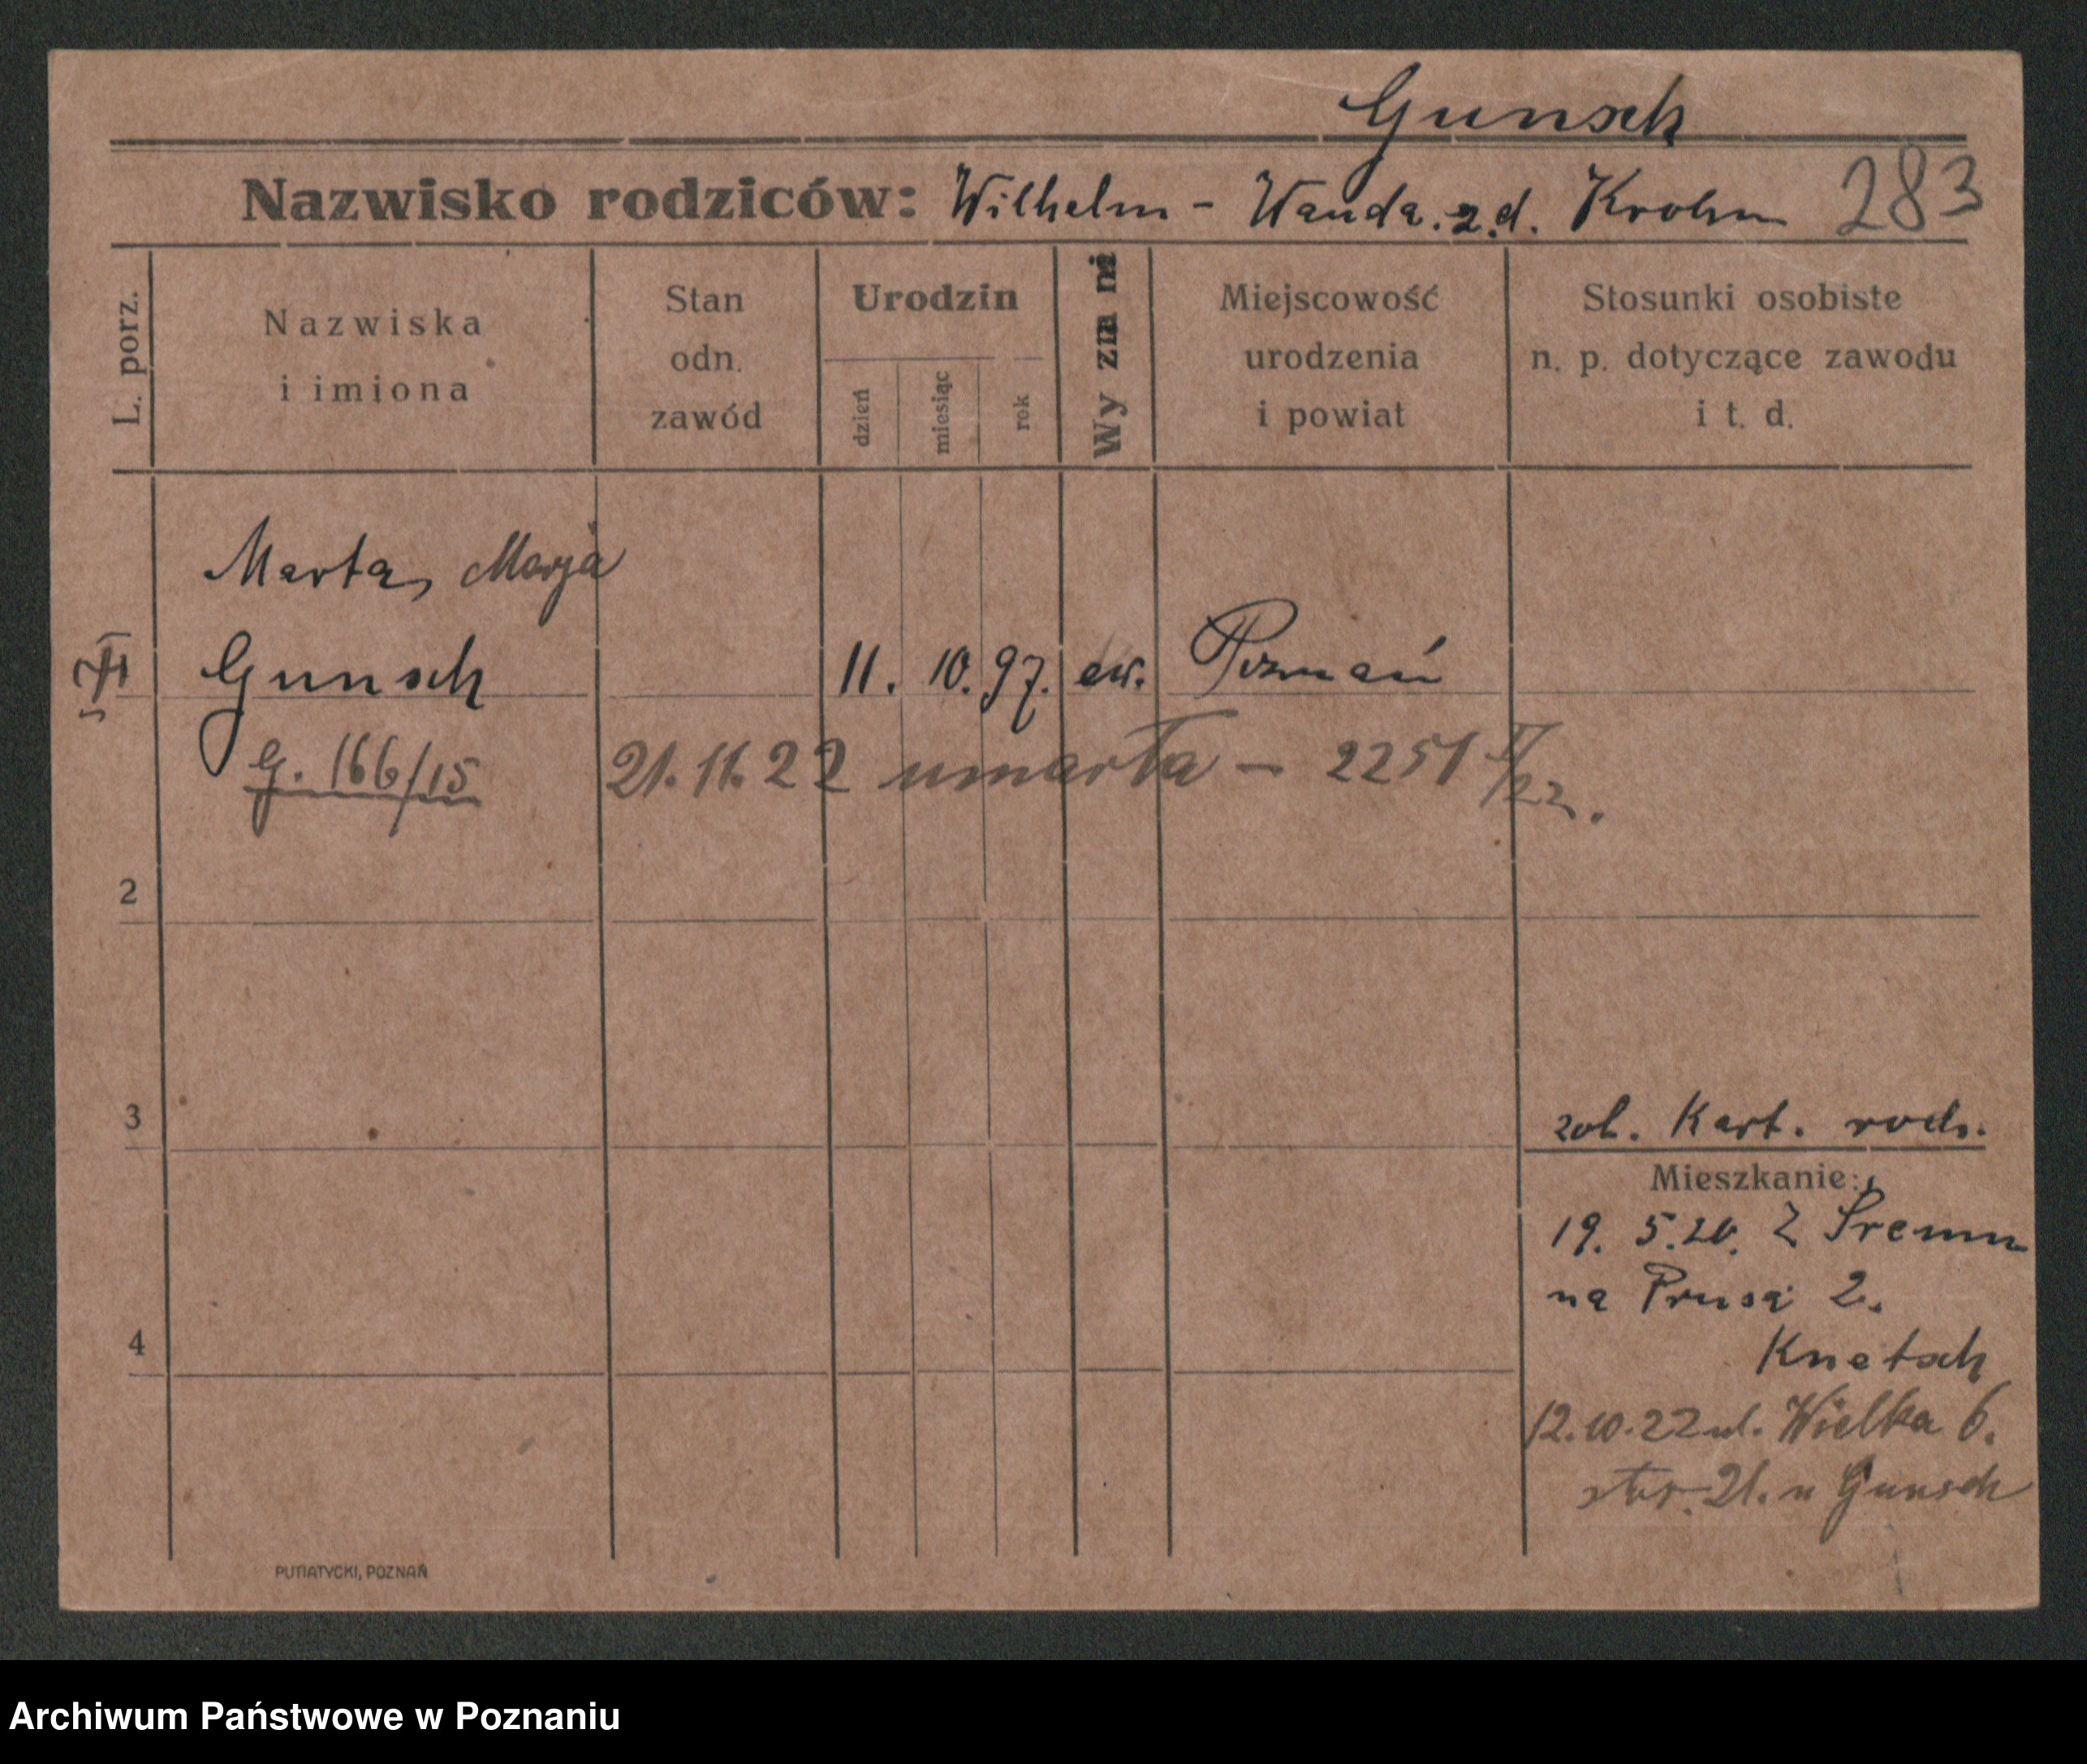 Gunsch
Nazwisko rodziców: Wilhelm - Wanda z.d. Krohn 283
L. porz.
Nazwiska
i imiona
Stan
odn.
zawód
Urodzin
dzień
miesiąc
rok
Wyznani
Miejscowość
urodzenia
i powiat
Stosunki osobiste
n. p. dotyczące zawodu
i t. d.
Marta, Marja
Gunsch 11. 10. 97. ew. Poznań
G. 166/15 21.11.22 umarła - 2251 /22.
2
3
zob. Kart. rodz.
Mieszkanie:
19. 5.20. Z Śremu
na Prusa 2.
4
Knetsch
12.10.22 ul. Wielka 6.
21. u Gunsch
PUTIATYCKI, POZNAŃ
Archiwum Państwowe w Poznaniu